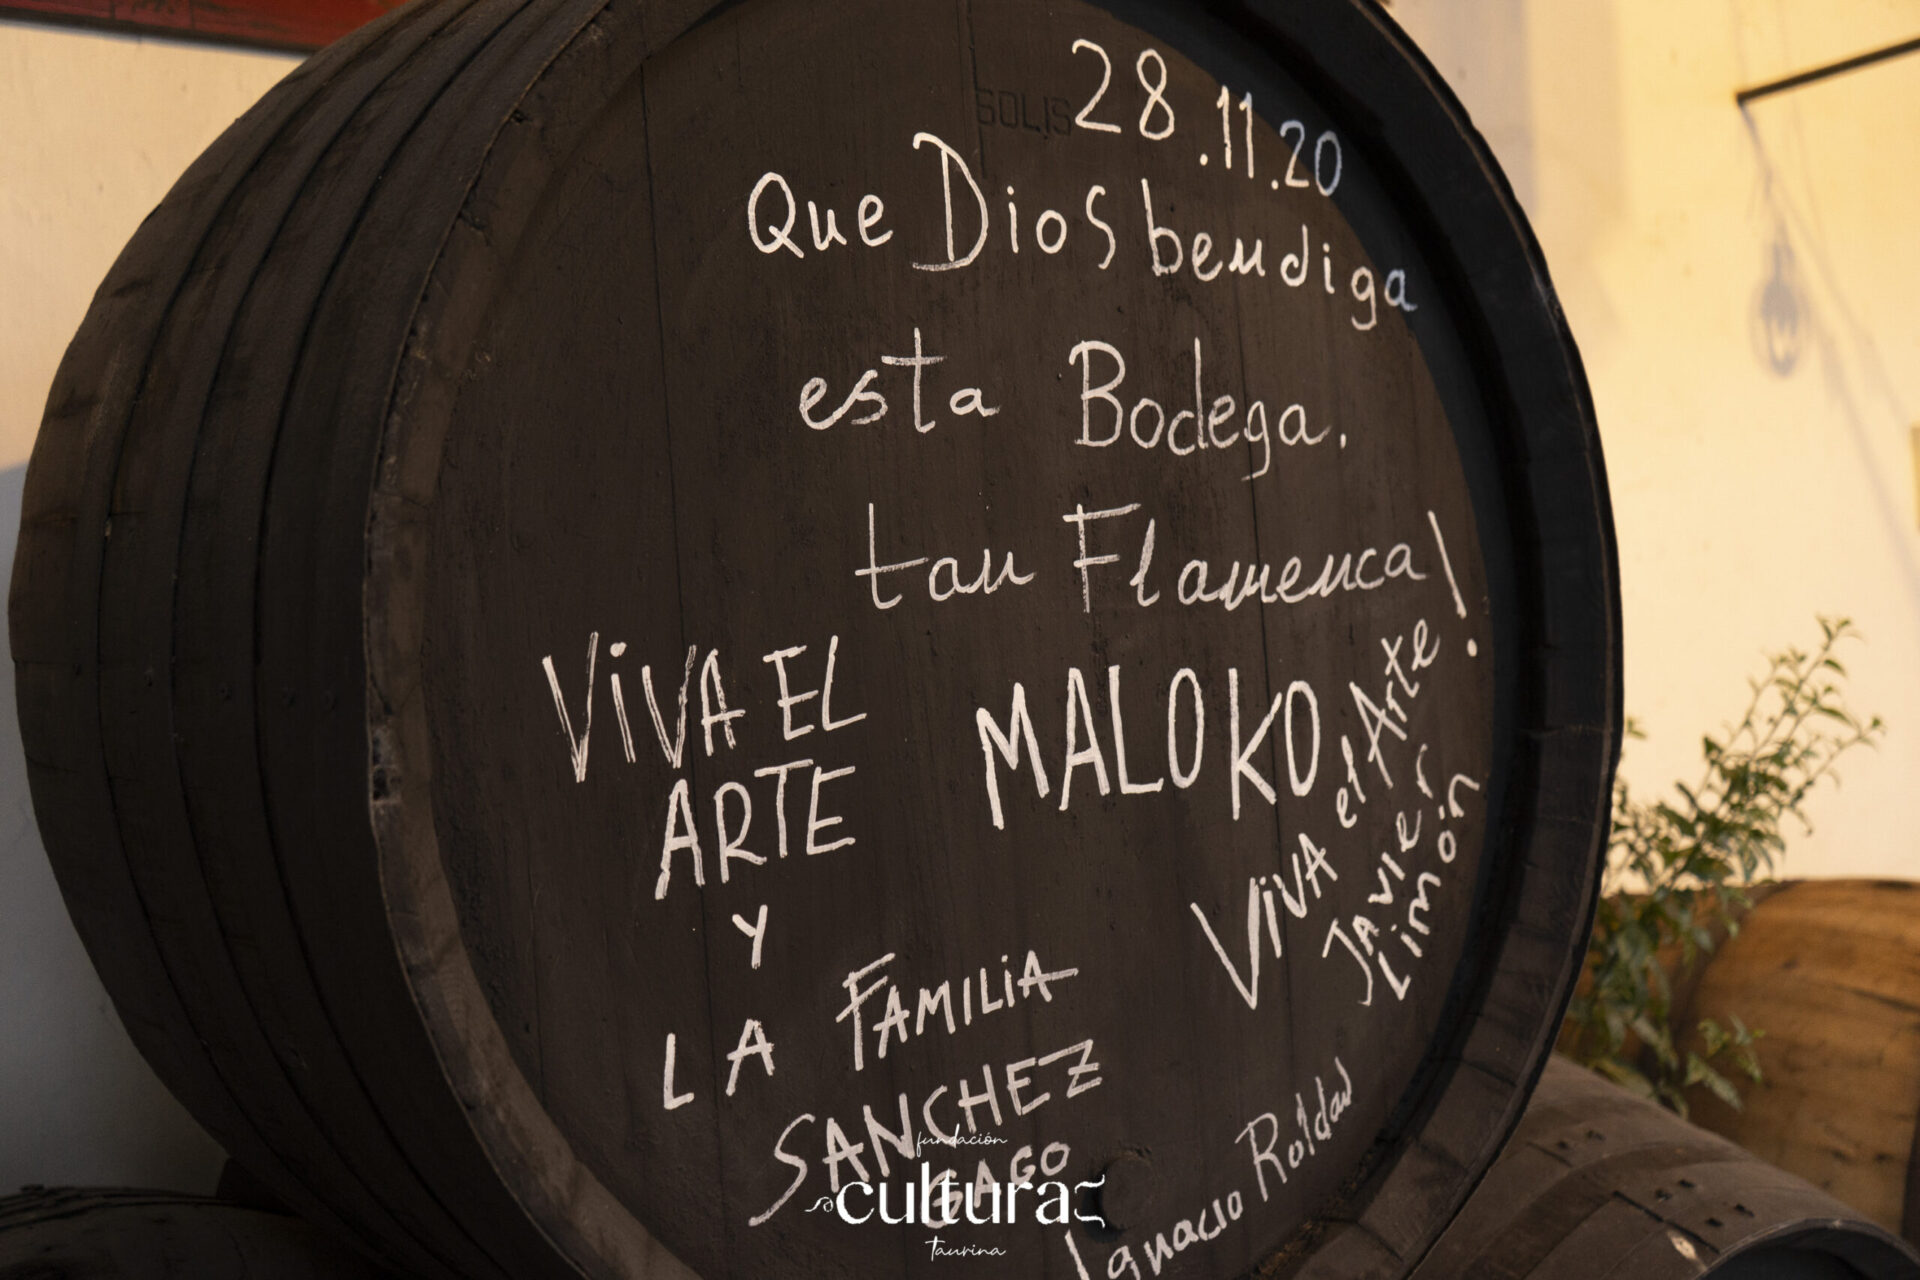 SOLIS
28.11.20
Que Dios bendiga
esta Bodega.
tan Flamenca!
MALOKO
VIVA EL
ARTE
Y
LA FAMILIA
SANCHEZ
GAGO
VIVA el Arte
Javier
Limón
Ignacio Roldan
fundación
cultura
Taurina